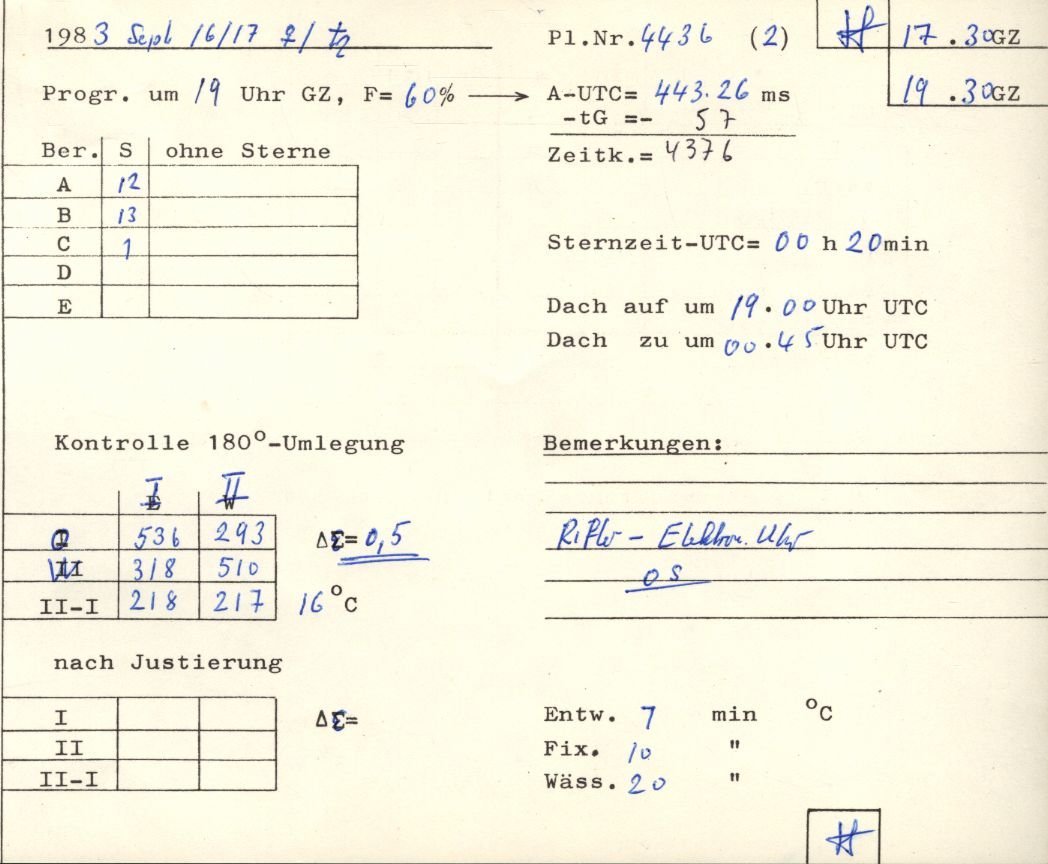 1983 Sept 16/17 ♀/♄ Pl.Nr. 4436 (2) 17.30GZ
Progr. um 19 Uhr GZ, F= 60% → A-UTC= 443.26 ms 19.30GZ
-tG =- 57
Zeitk.= 4376
Ber. S ohne Sterne
A 12
B 13
C 1
D
E
Sternzeit-UTC= 00 h 20min
Dach auf um 19.00 Uhr UTC
Dach zu um 00.45 Uhr UTC
Kontrolle 180°-Umlegung
Bemerkungen:
I II
O 536 293 ΔΣ= 0,5
W 318 510
II-I 218 217 16 °C
Rifler - Elektron. Uhr
0S
nach Justierung
I ΔΣ=
II
II-I
Entw. 7 min °C
Fix. 10 "
Wäss. 20 "